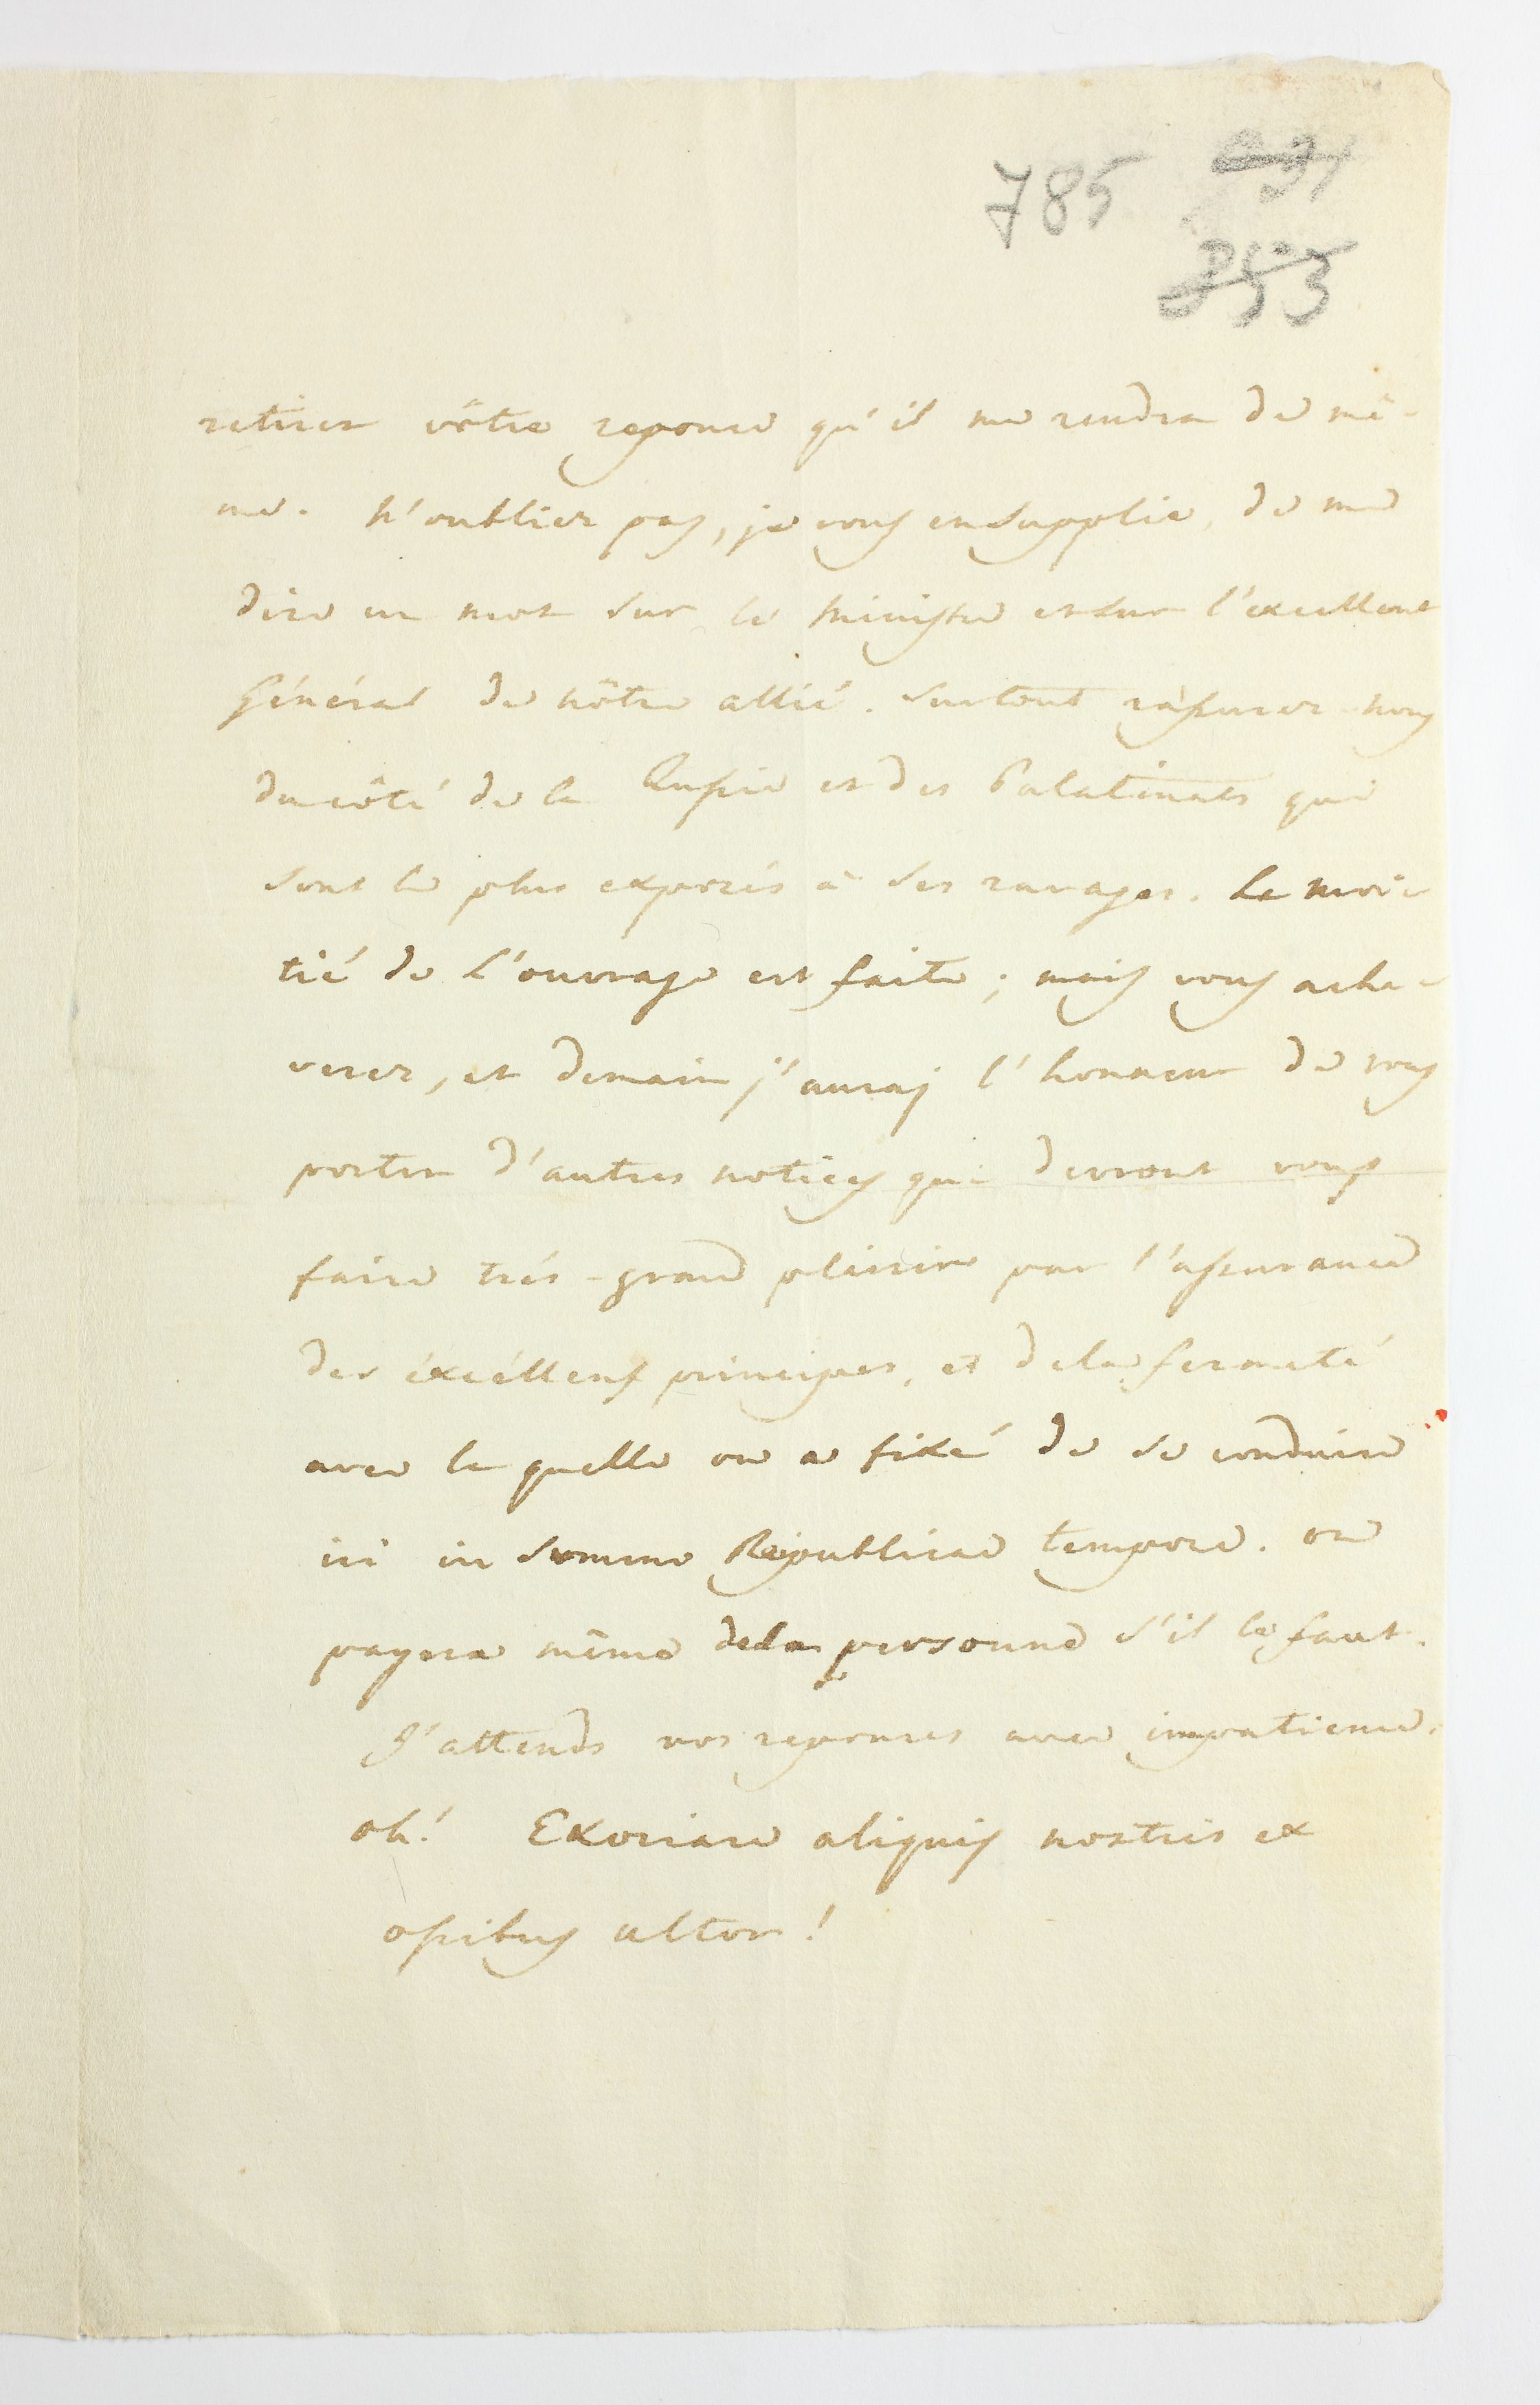 785
353
retirer vôtre reponse qu'il me rendra de mê-
me. N'oublier pas, je vous en supplie, de me
dire un mot sur le Ministre et sur l'excellent
Général de nôtre allié. Surtout rassurer-nous
du côté de la Russie et des Palatinats qui
sont le plus exposés à ses ravages. La moi-
tié de l'ouvrage est faite; mais vous ache-
verez, et demain j'auraj l'honneur de vous
porter d'autres notices qui devront vous
faire trés-grand plaisir par l'assurance
des éxcéllens principes, et de la fermeté
avec la quelle on a fixé de se conduire
ici in summo Reipublicae tempore. on
payera même de la personne s'il le faut.
J'attends vos reponses avec impatience.
oh! Exoriare aliquis nostris ex
ossibus ultor!